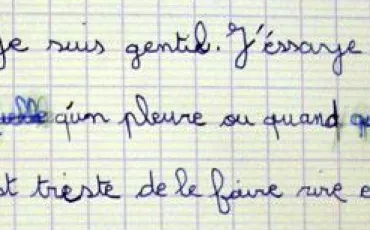 je suis gentil. J'éssaye
qu'un pleure ou quand
st triste de le faire rire e